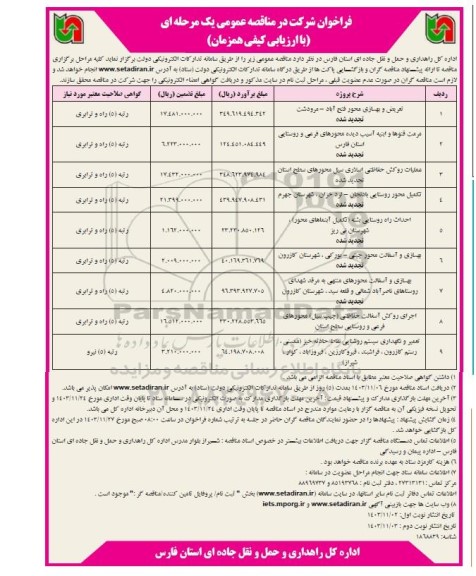 فراخوان شرکت در مناقصه عمومی یک مرحله ای
(با ارزیابی کیفی همزمان)
اداره کل راهداری و حمل و نقل جاده ای استان فارس در نظر دارد مناقصه عمومی زیر را از طریق سامانه تدارکات الکترونیکی دولت برگزار نماید. کلیه مراحل برگزاری
مناقصه تا ارائه پیشنهاد مناقصه گران و بازگشایی پاکت ها از طریق درگاه سامانه تدارکات الکترونیکی دولت (ستاد) به آدرس www.setadiran.ir انجام خواهد شد و
لازم است مناقصه گران در صورت عدم عضویت قبلی ، مراحل ثبت نام در سایت مذکور و دریافت گواهی امضاء الکترونیکی را جهت شرکت در مناقصه محقق سازند.
ردیف شرح پروژه مبلغ برآورد (ریال) مبلغ تضمین (ریال) گواهی صلاحیت معتبر مورد نیاز
۱ تعریض و بهسازی محور فتح آباد – مرودشت تجدید شده ۳۴۹،۶۱۹،۴۹۴،۳۴۲ ۱۷،۴۸۱،۰۰۰،۰۰۰ رتبه (۵) راه و ترابری
۲ مرمت قنوها و ابنیه آسیب دیده محورهای فرعی و روستایی استان فارس تجدید شده ۱۲۴،۴۵۱،۰۸۴،۴۴۹ ۶،۲۲۳،۰۰۰،۰۰۰ رتبه (۵) راه و ترابری
۳ عملیات روکش حفاظتی اسلاری سیل محورهای سطح استان تجدید شده ۳۴۸،۶۲۳،۹۷۴،۹۸۴ ۱۷،۴۳۲،۰۰۰،۰۰۰ رتبه (۵) راه و ترابری
۴ تکمیل محور روستایی شهرستان جهرم تجدید شده ۴۳۹،۹۴۷،۹۰۸،۴۳۱ ۲۱،۳۹۹،۰۰۰،۰۰۰ رتبه (۵) راه و ترابری
۵ احداث راه روستایی بشنه (تکمیل آبنماهای محور) ، شهرستان نی ریز تجدید شده ۲۳،۲۳۰،۸۵۰،۱۲۶ ۱،۱۶۲،۰۰۰،۰۰۰ رتبه (۵) راه و ترابری
۶ بهسازی و آسفالت محور ، شهرستان کازرون تجدید شده ۴۰،۱۶۹،۳۶۱،۷۶۹ ۲،۰۰۹،۰۰۰،۰۰۰ رتبه (۵) راه و ترابری
۷ بهسازی و آسفالت محورهای منتهی به مرقد شهدای روستاهای ناصرآباد شمالی و قلعه سید ، شهرستان کازرون تجدید شده ۹۶،۳۹۲،۹۲۷،۷۰۵ ۴،۸۲۰،۰۰۰،۰۰۰ رتبه (۵) راه و ترابری
۸ اجرای روکش آسفالت حفاظتی (چیپ سیل) محورهای فرعی و روستایی سطح استان ۳۳۰،۲۲۸،۵۵۲،۶۶۵ ۱۶،۵۱۲،۰۰۰،۰۰۰ رتبه (۵) راه و ترابری
۹ تعمیر و نگهداری سیستم روشنایی نقاط حادثه خیز رستم کازرون، فراشبند، قیروکارزین، فیروزآباد، کوار، شیراز ۶۴،۱۹۸،۷۰۸،۰۰۸ ۳،۲۱۰،۰۰۰،۰۰۰ رتبه (۵) نیرو
۱) داشتن گواهی صلاحیت معتبر مطابق با اسناد مناقصه الزامی می باشد.
۲) دریافت اسناد مناقصه مورخ ۱۴۰۳/۱۱/۰۶ بمدت (۵) روز از طریق سامانه تدارکات الکترونیکی دولت (ستاد) به آدرس www.setadiran.ir امکان پذیر می باشد.
۳) آخرین مهلت بارگذاری مدارک و پیشنهاد قیمت: آخرین مهلت بارگذاری مدارک به صورت الکترونیکی در سامانه ستاد تا پایان وقت اداری مورخ ۱۴۰۳/۱۱/۲۴ و
تحویل نسخه فیزیکی آن به مناقصه گزار با رعایت موارد مندرج در اسناد مناقصه تا پایان وقت اداری ۱۴۰۳/۱۱/۲۴ و محل آن دبیرخانه اداره کل می باشد.
۴) زمان گشایش پیشنهاد : پیشنهادها را در حضور نمایندگان مناقصه گران حاضر در جلسه به ترتیب شماره فراخوان در ساعت ۰۸:۰۰ صبح مورخ ۱۴۰۳/۱۱/۲۷ در این اداره
کل بازگشایی خواهد شد .
۵) اطلاعات تماس دستگاه مناقصه گزار جهت دریافت اطلاعات بیشتر در خصوص اسناد مناقصه : شیراز بلوار مدرس اداره کل راهداری و حمل و نقل جاده ای استان
فارس – اداره پیمان و رسیدگی
۶) هزینه کارمزد ستاد به عهده برنده مناقصه خواهد بود.
۷) اطلاعات سامانه ستاد جهت انجام مراحل عضویت در سامانه :
مرکز تماس : ۲۷۳۱۳۱۳۱ ، دفتر ثبت نام : ۸۵۱۹۳۷۶۸ و ۸۸۹۶۹۷۳۷
اطلاعات تماس دفاتر ثبت نام سایر استانها، در سایت سامانه (www.setadiran.ir) بخش " ثبت نام/ پروفایل تامین کننده/مناقصه گر :" موجود است .
۸) وب سایت ها جهت بازبینی آگهی www.setadiran.ir و iets.mporg.ir
تاریخ انتشار نوبت اول: ۱۴۰۳/۱۱/۰۲
تاریخ انتشار نوبت دوم: ۱۴۰۳/۱۱/۰۳
شناسه: ۱۸۶۸۸۲۹
اداره کل راهداری و حمل و نقل جاده ای استان فارس